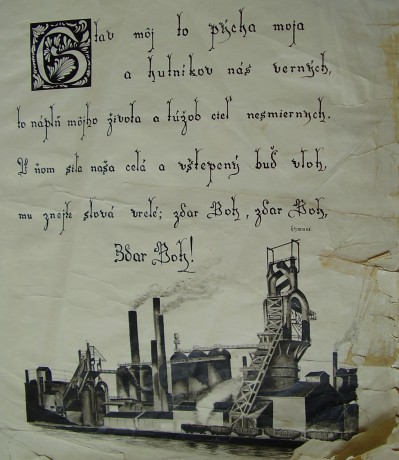 Stav môj to pýcha moja
a hutníkov nás verných,
to náplň môjho života a túžob cieľ nesmiernych.
V ňom sila naša celá a vštepený buď vloh,
mu znejte slová vrelé; zdar Boh, zdar Boh,
Zdar Boh!